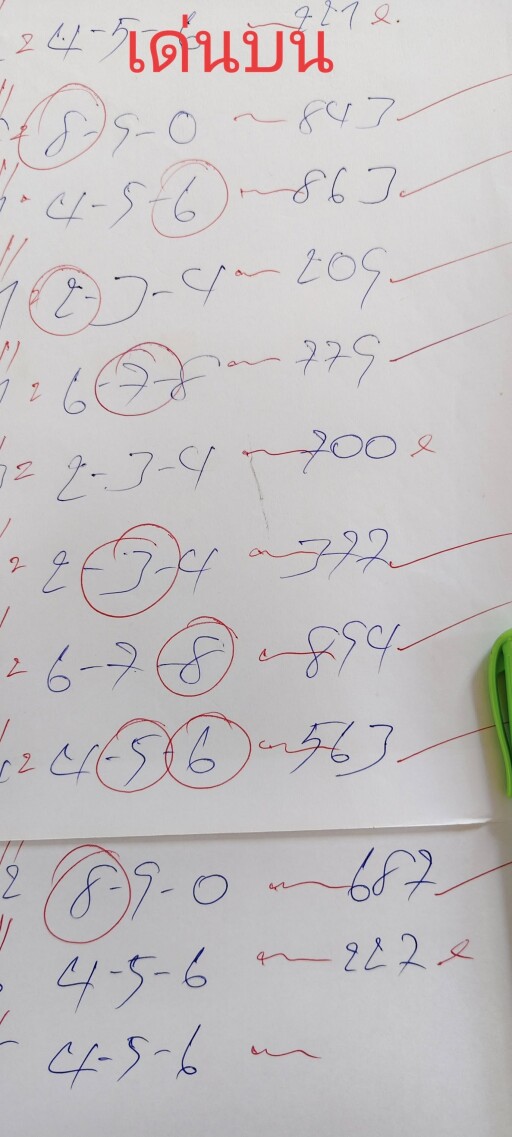 4-5-6 221
เด่นบน
8-9-0 843
4-5-6 863
2-3-4 209
6-7-8 779
2-3-4 700
2-3-4 377
6-7-8 894
4-5-6 563
8-9-0 687
4-5-6 227
4-5-6